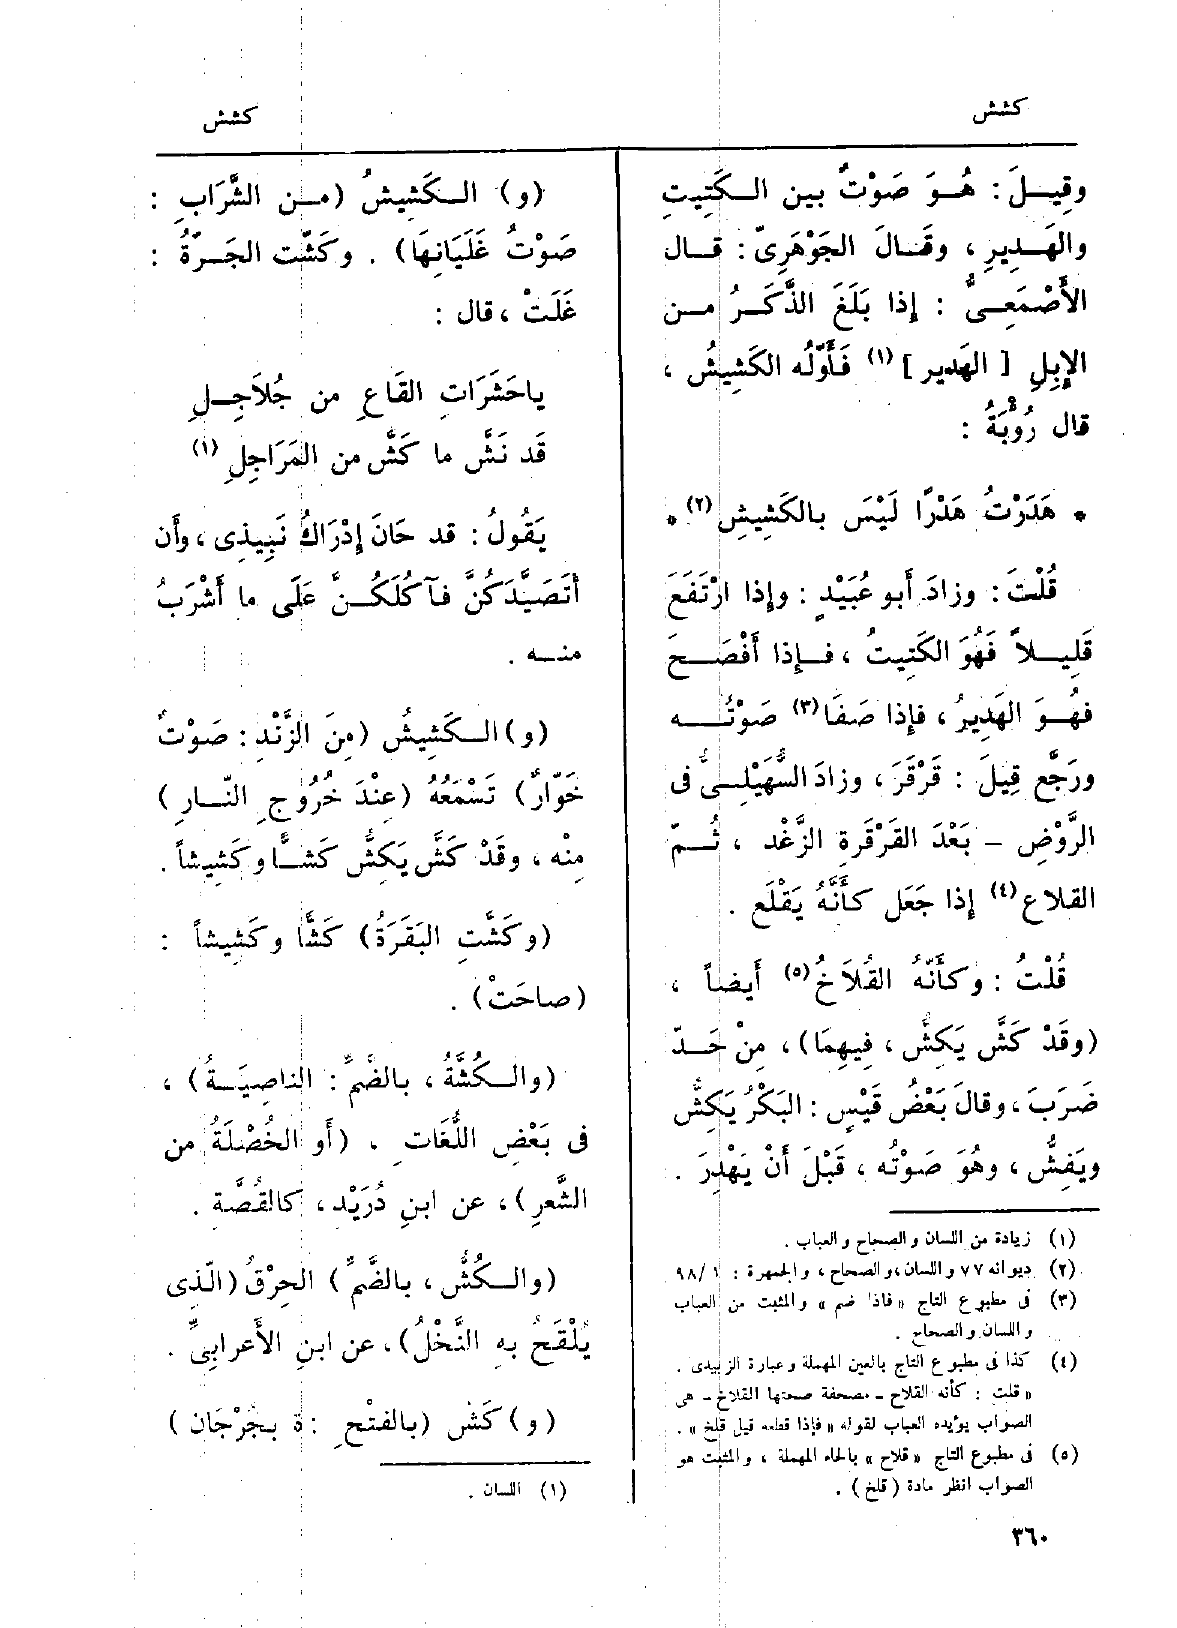 كشش
كشش
وقِيلَ : هُوَ صَوْتٌ بين الكَتِيتِ
والهَدِيرِ ، وقَالَ الجَوْهَرِىّ : قال
الأَصْمَعِىُّ : إذا بَلَغَ الذَّكَرُ من
الإِبِلِ [ الهَدير ] (١) فَأَوّلُه الكَشِيشُ ،
قال رُؤْبَةُ :
* هَدَرْتُ هَدْرًا لَيْسَ بالكَشِيشِ (٢) *
قُلْتُ : وزادَ أَبو عُبَيْدٍ : وإِذا ارْتَفَعَ
قَلِيلاً فَهُوَ الكَتِيتُ ، فإِذا أَفْصَحَ
فهُوَ الهَدِيرُ ، فإِذا صَفَا (٣) صَوْتُه
ورَجَّع قِيلَ : قَرْقَرَ ، وزادَ السُّهَيْلِىُّ فى
الرَّوْضِ – بَعْدَ القَرْقَرةِ الزَّغْد ، ثُمّ
القلاع (٤) إذا جَعَل كأَنَّهُ يَقْلَع .
قُلْتُ : وكأَنّهُ القُلاَخُ (٥) أَيضاً ،
(وقَدْ كَشَّ يَكِشُّ ، فِيهِمَا) ، مِنْ حَدّ
ضَرَبَ ، وقالَ بَعْضُ قَيْسٍ : البَكْرُ يَكِشُّ
ويَفِشُّ ، وهُوَ صَوْتُه ، قَبْلَ أَنْ يَهْدِرَ .
(١) زيادة من اللسان والصحاح والعباب .
(٢) ديوانه ٧٧ واللسان ، والصحاح ، والجمهرة : ١ /٩٨
(٣) فى مطبوع التاج « فاذا ضم » والمثبت من العباب
واللسان والصحاح .
(٤) كذا فى مطبوع التاج بالعين المهملة وعبارة الزبيدى .
« قلت : كأنه القلاح – مصحفة صحتها القلاخ – هى
الصواب يؤيده العباب لقوله « فإذا قطعه قيل قلخ » .
(٥) فى مطبوع التاج « قلاح » بالحاء المهملة ، والمثبت هو
الصواب انظر مادة ( قلخ ) .
(و) الكَشِيشُ (من الشَّرَابِ :
صَوْتُ غَلَيَانِهَا) . وكَشَّت الجَرّةُ :
غَلَتْ ، قال :
ياحَشَرَاتِ القَاعِ من جُلاَجِلِ
قَد نَشَّ ما كَشَّ من المَرَاجِلِ (١)
يَقُولُ : قد حَانَ إِدْرَاكُ نَبِيذِى ، وأَن
أَتَصَيَّدَكُنَّ فآكُلَكُنَّ عَلَى ما أَشْرَبُ
منه .
(و) الكَشِيشُ (مِنَ الزَّنْدِ : صَوْتٌ
خَوّارٌ) تَسْمَعُهُ (عِنْدَ خُرُوجِ النّارِ)
مِنْه ، وقَدْ كَشَّ يَكِشُّ كَشًّا وكَشِيشاً .
(وكَشَّتِ البَقَرَةُ) كَشًّا وكَشِيشاً :
(صاحَتْ) .
(والكُشَّةُ ، بالضّمّ : الناصِيَةُ) ،
فى بَعْضِ اللُّغَاتِ . (أَو الخُصْلَةُ من
الشَّعرِ) ، عن ابنِ دُرَيْد ، كالقُصَّةِ .
(والكُشُّ ، بالضَّمِّ) الحِرْقُ (الّذِى
يُلْقَحُ به النَّخْلُ) ، عن ابنِ الأَعرابِىِّ .
(و) كَشّ (بالفَتْحِ : ة بجُرْجَان)
(١) اللسان .
٣٦٠